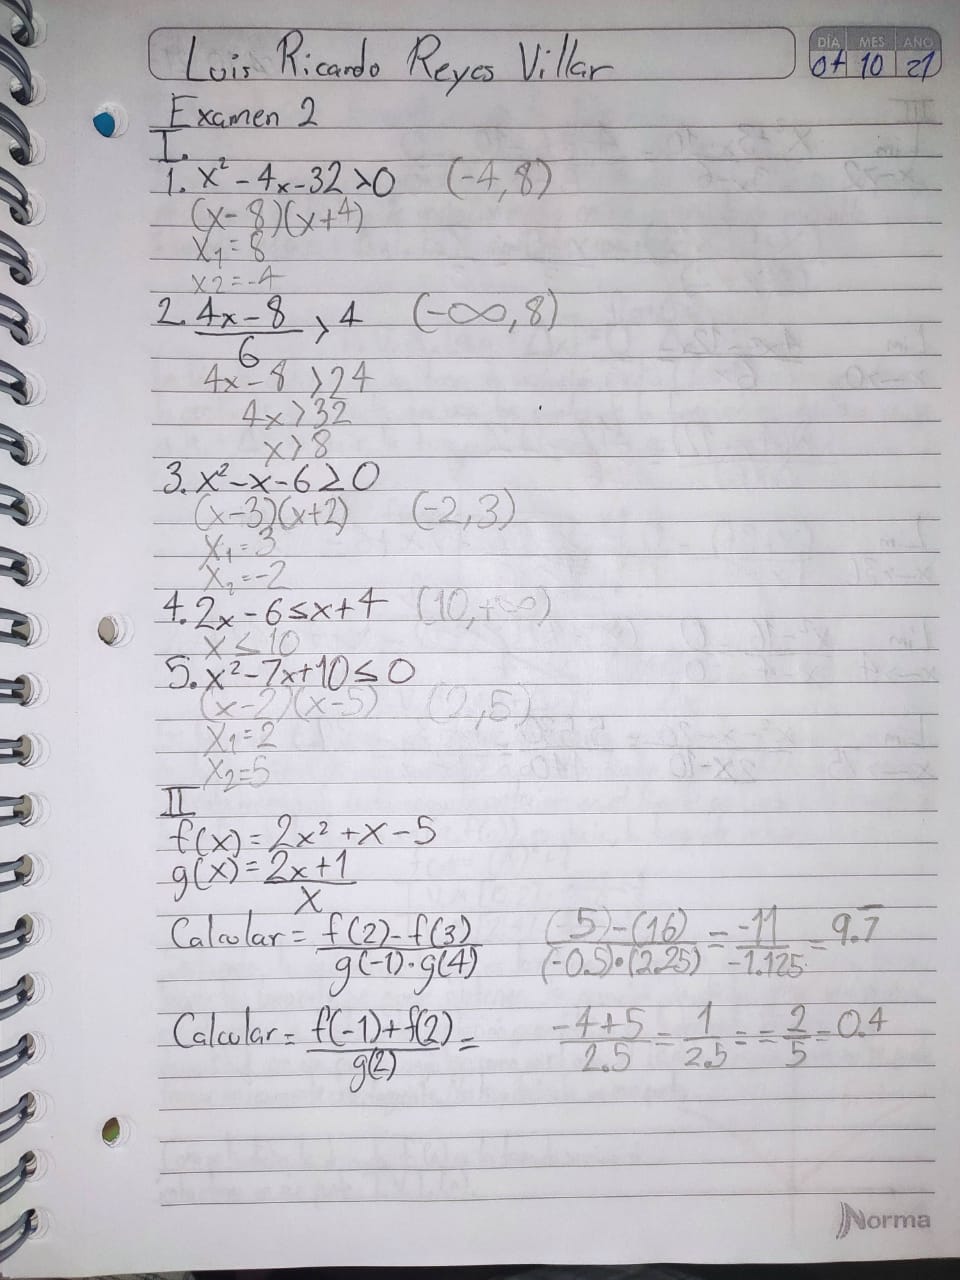 DÍA MES AÑO
Luis Ricardo Reyes Villar 07 10 21
Examen 2
I.
1. x² - 4x - 32 > 0 (-4, 8)
(x - 8)(x + 4)
x₁ = 8
x₂ = -4
2. (4x - 8)/6 > 4 (-∞, 8)
4x - 8 > 24
4x > 32
x > 8
3. x² - x - 6 ≥ 0
(x-3)(x+2) (-2, 3)
x₁ = 3
x₂ = -2
4. 2x - 6 ≤ x + 4 (10, +∞)
x ≤ 10
5. x² - 7x + 10 ≤ 0
(x-2)(x-5) (2, 5)
x₁ = 2
x₂ = 5
II
f(x) = 2x² + x - 5
g(x) = (2x + 1)/x
Calcular = (f(2) - f(3))/(g(-1) · g(4)) ((5) - (16))/((-0.5) · (2.25)) = -11/-1.125 = 9.7̅
Calcular = (f(-1) + f(2))/g(2) = (-4 + 5)/2.5 = 1/2.5 = = 2/5 = 0.4
Norma